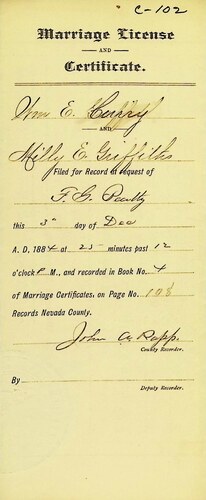 C-102
Marriage License
AND
Certificate.
Wm E. Curry
AND
Milly E. Griffiths
Filed for Record at request of
F. G.
this 3d day of Dec
A. D. 1884 at 23 minutes past 12
o'clock P M., and recorded in Book No. 4
of Marriage Certificates, on Page No.
Records Nevada County.
John A. Rapp.
County Recorder.
By
Deputy Recorder.